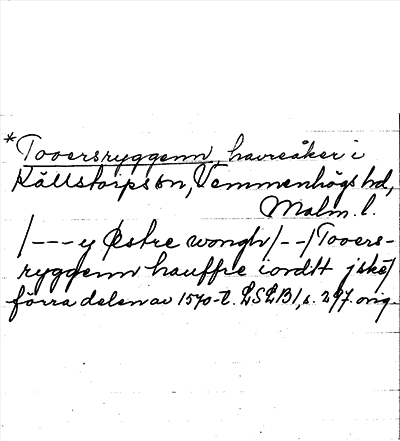 *Tooersryggenn, havreåker i
Källstorps sn, Vemmenhögs hd,
Malm. l.
/---y Østre wongh/--/Tooers-
ryggenn hauffre iordtt j skè/
förra delen av 1570-t. LSLB1, s. 297. orig.